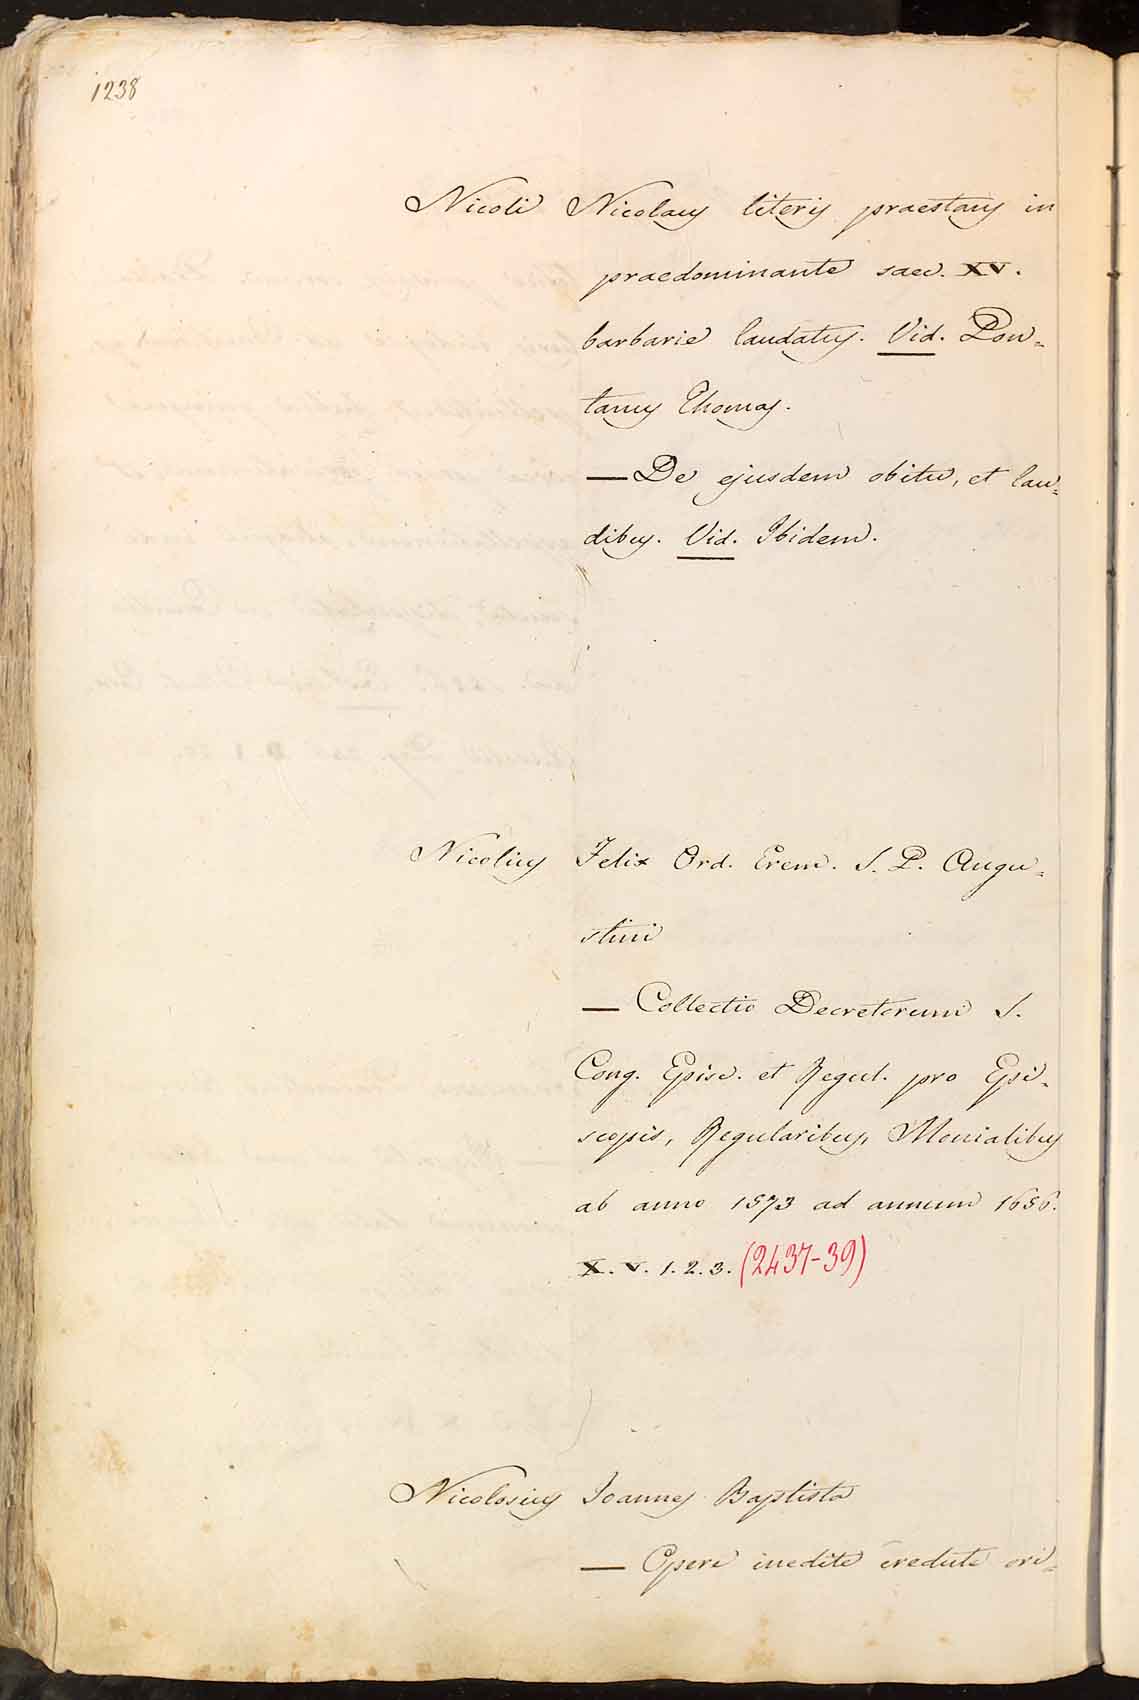 1238
Nicoli Nicolaus literis praestans in
praedominante saec. XV.
barbarie laudatus. Vid. Pon=
tanus Thomas.
— De ejusdem obitu, et lau=
dibus. Vid. Ibidem.
Nicolius Felix Ord. Erem. S. P. Augu=
stini
— Collectio Decretorum S.
Cong. Episc. et Regul. pro Epi=
scopis, Regularibus, Monialibus
ab anno 1573 ad annum 1656.
X. V. 1. 2. 3. (2437-39)
Nicolosius Joannes Baptista
— Opere inedite credute ori=